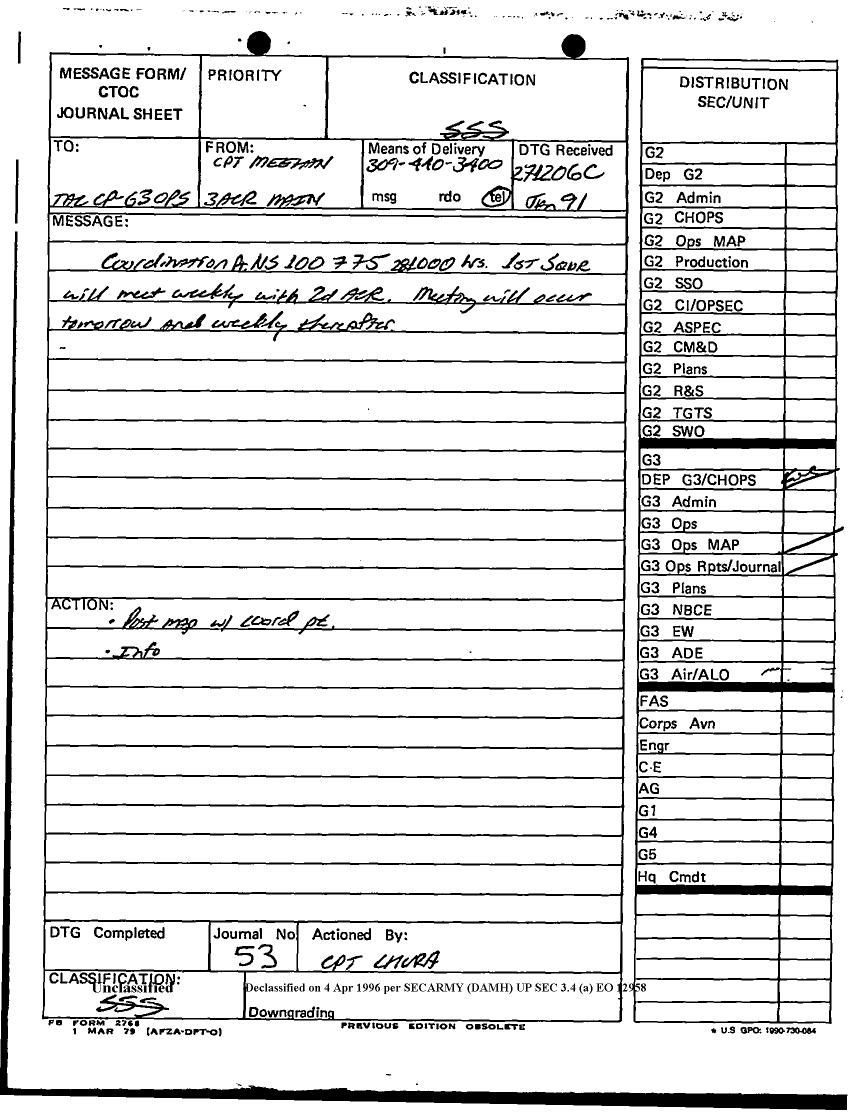 MESSAGE FORM/
CTOC
JOURNAL SHEET
PRIORITY
CLASSIFICATION
SSS
TO:
TAC CP-G3 OPS
FROM:
CPT MEEHAN
3ACR MAIN
Means of Delivery
309-440-3400
msg rdo tel
DTG Received
271206C
Jan 91
MESSAGE:
Coordination Pt. NS 100 775 281000 hrs. 1ST Sqdr
will meet weekly with 2d ACR. Meeting will occur
tomorrow and weekly thereafter.
ACTION:
• Post map w/ coord pt.
• Info
DTG Completed
Journal No
53
Actioned By:
CPT
CLASSIFICATION:
Unclassified
SSS
Declassified on 4 Apr 1996 per SECARMY (DAMH) UP SEC 3.4 (a) EO 12958
Downgrading
FB FORM 2768
1 MAR 79 (AFZA-DPT-O)
PREVIOUS EDITION OBSOLETE
DISTRIBUTION
SEC/UNIT
G2
Dep G2
G2 Admin
G2 CHOPS
G2 Ops MAP
G2 Production
G2 SSO
G2 CI/OPSEC
G2 ASPEC
G2 CM&D
G2 Plans
G2 R&S
G2 TGTS
G2 SWO
G3
DEP G3/CHOPS
G3 Admin
G3 Ops
G3 Ops MAP
G3 Ops Rpts/Journal
G3 Plans
G3 NBCE
G3 EW
G3 ADE
G3 Air/ALO
FAS
Corps Avn
Engr
C-E
AG
G1
G4
G5
Hq Cmdt
* U.S GPO: 1990-730-084